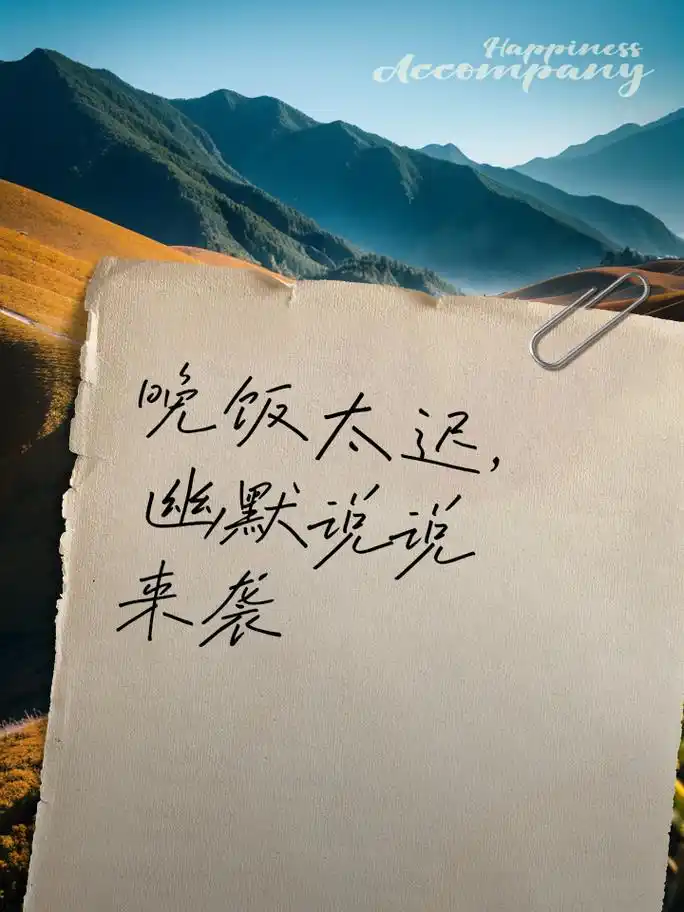 Happiness
Accompany
晚饭太迟，
幽默说说
来袭